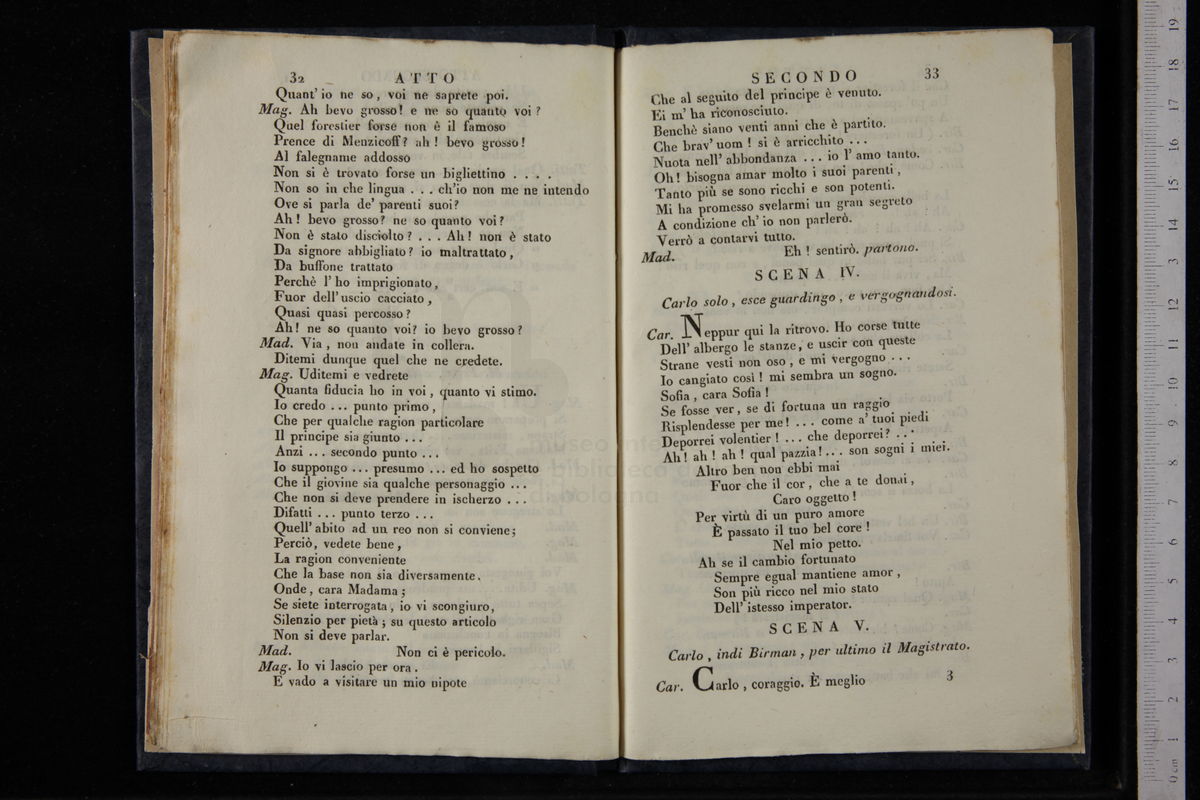 32 ATTO
Quant' io ne so, voi ne saprete poi.
Mag. Ah bevo grosso! e ne so quanto voi?
Quel forestier forse non è il famoso
Prence di Menzicoff? ah! bevo grosso!
Al falegname addosso
Non si è trovato forse un bigliettino . . . .
Non so in che lingua . . . ch'io non me ne intendo
Ove si parla de' parenti suoi?
Ah! bevo grosso? ne so quanto voi?
Non è stato disciolto? . . . Ah! non è stato
Da signore abbigliato? io maltrattato,
Da buffone trattato
Perchè l' ho imprigionato,
Fuor dell' uscio cacciato,
Quasi quasi percosso?
Ah! ne so quanto voi? io bevo grosso?
Mad. Via, non andate in collera.
Ditemi dunque quel che ne credete.
Mag. Uditemi e vedrete
Quanta fiducia ho in voi, quanto vi stimo.
Io credo ... punto primo,
Che per qualche ragion particolare
Il principe sia giunto ...
Anzi ... secondo punto ...
Io suppongo ... presumo ... ed ho sospetto
Che il giovine sia qualche personaggio ...
Che non si deve prendere in ischerzo ...
Difatti ... punto terzo ...
Quell' abito ad un reo non si conviene;
Perciò, vedete bene,
La ragion conveniente
Che la base non sia diversamente.
Onde, cara Madama;
Se siete interrogata, io vi scongiuro,
Silenzio per pietà; su questo articolo
Non si deve parlar.
Mad. Non ci è pericolo.
Mag. Io vi lascio per ora.
E vado a visitare un mio nipote
SECONDO 33
Che al seguito del principe è venuto.
Ei m' ha riconosciuto.
Benchè siano venti anni che è partito.
Che brav' uom! si è arricchito ...
Nuota nell' abbondanza ... io l' amo tanto.
Oh! bisogna amar molto i suoi parenti,
Tanto più se sono ricchi e son potenti.
Mi ha promesso svelarmi un gran segreto
A condizione ch' io non parlerò.
Verrò a contarvi tutto.
Mad. Eh! sentirò. partono.
SCENA IV.
Carlo solo, esce guardingo, e vergognandosi.
Car. Neppur qui la ritrovo. Ho corse tutte
Dell' albergo le stanze, e uscir con queste
Strane vesti non oso, e mi vergogno ...
Io cangiato così! mi sembra un sogno.
Sofia, cara Sofia!
Se fosse ver, se di fortuna un raggio
Risplendesse per me! ... come a' tuoi piedi
Deporrei volentier! ... che deporrei? ...
Ah! ah! ah! qual pazzia!... son sogni i miei.
Altro ben non ebbi mai
Fuor che il cor, che a te donai,
Caro oggetto!
Per virtù di un puro amore
È passato il tuo bel core!
Nel mio petto.
Ah se il cambio fortunato
Sempre egual mantiene amor,
Son più ricco nel mio stato
Dell' istesso imperator.
SCENA V.
Carlo, indi Birman, per ultimo il Magistrato.
Car. Carlo, coraggio. È meglio
3